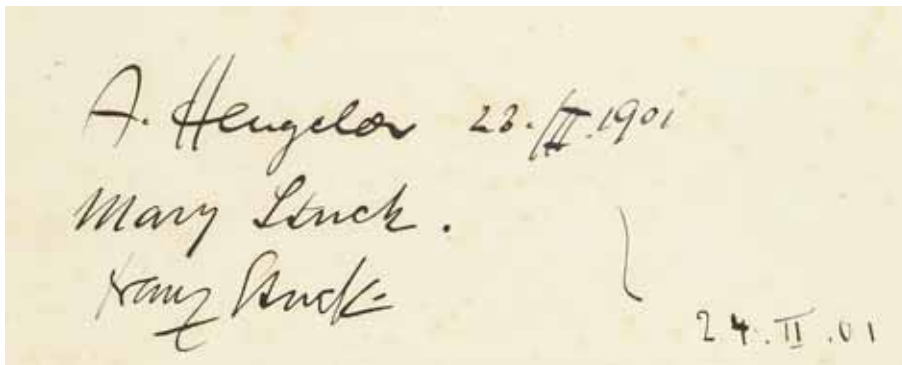 A. Hengeler 23./II.1901
Mary Stuck.
Franz Stuck.
24.II.01